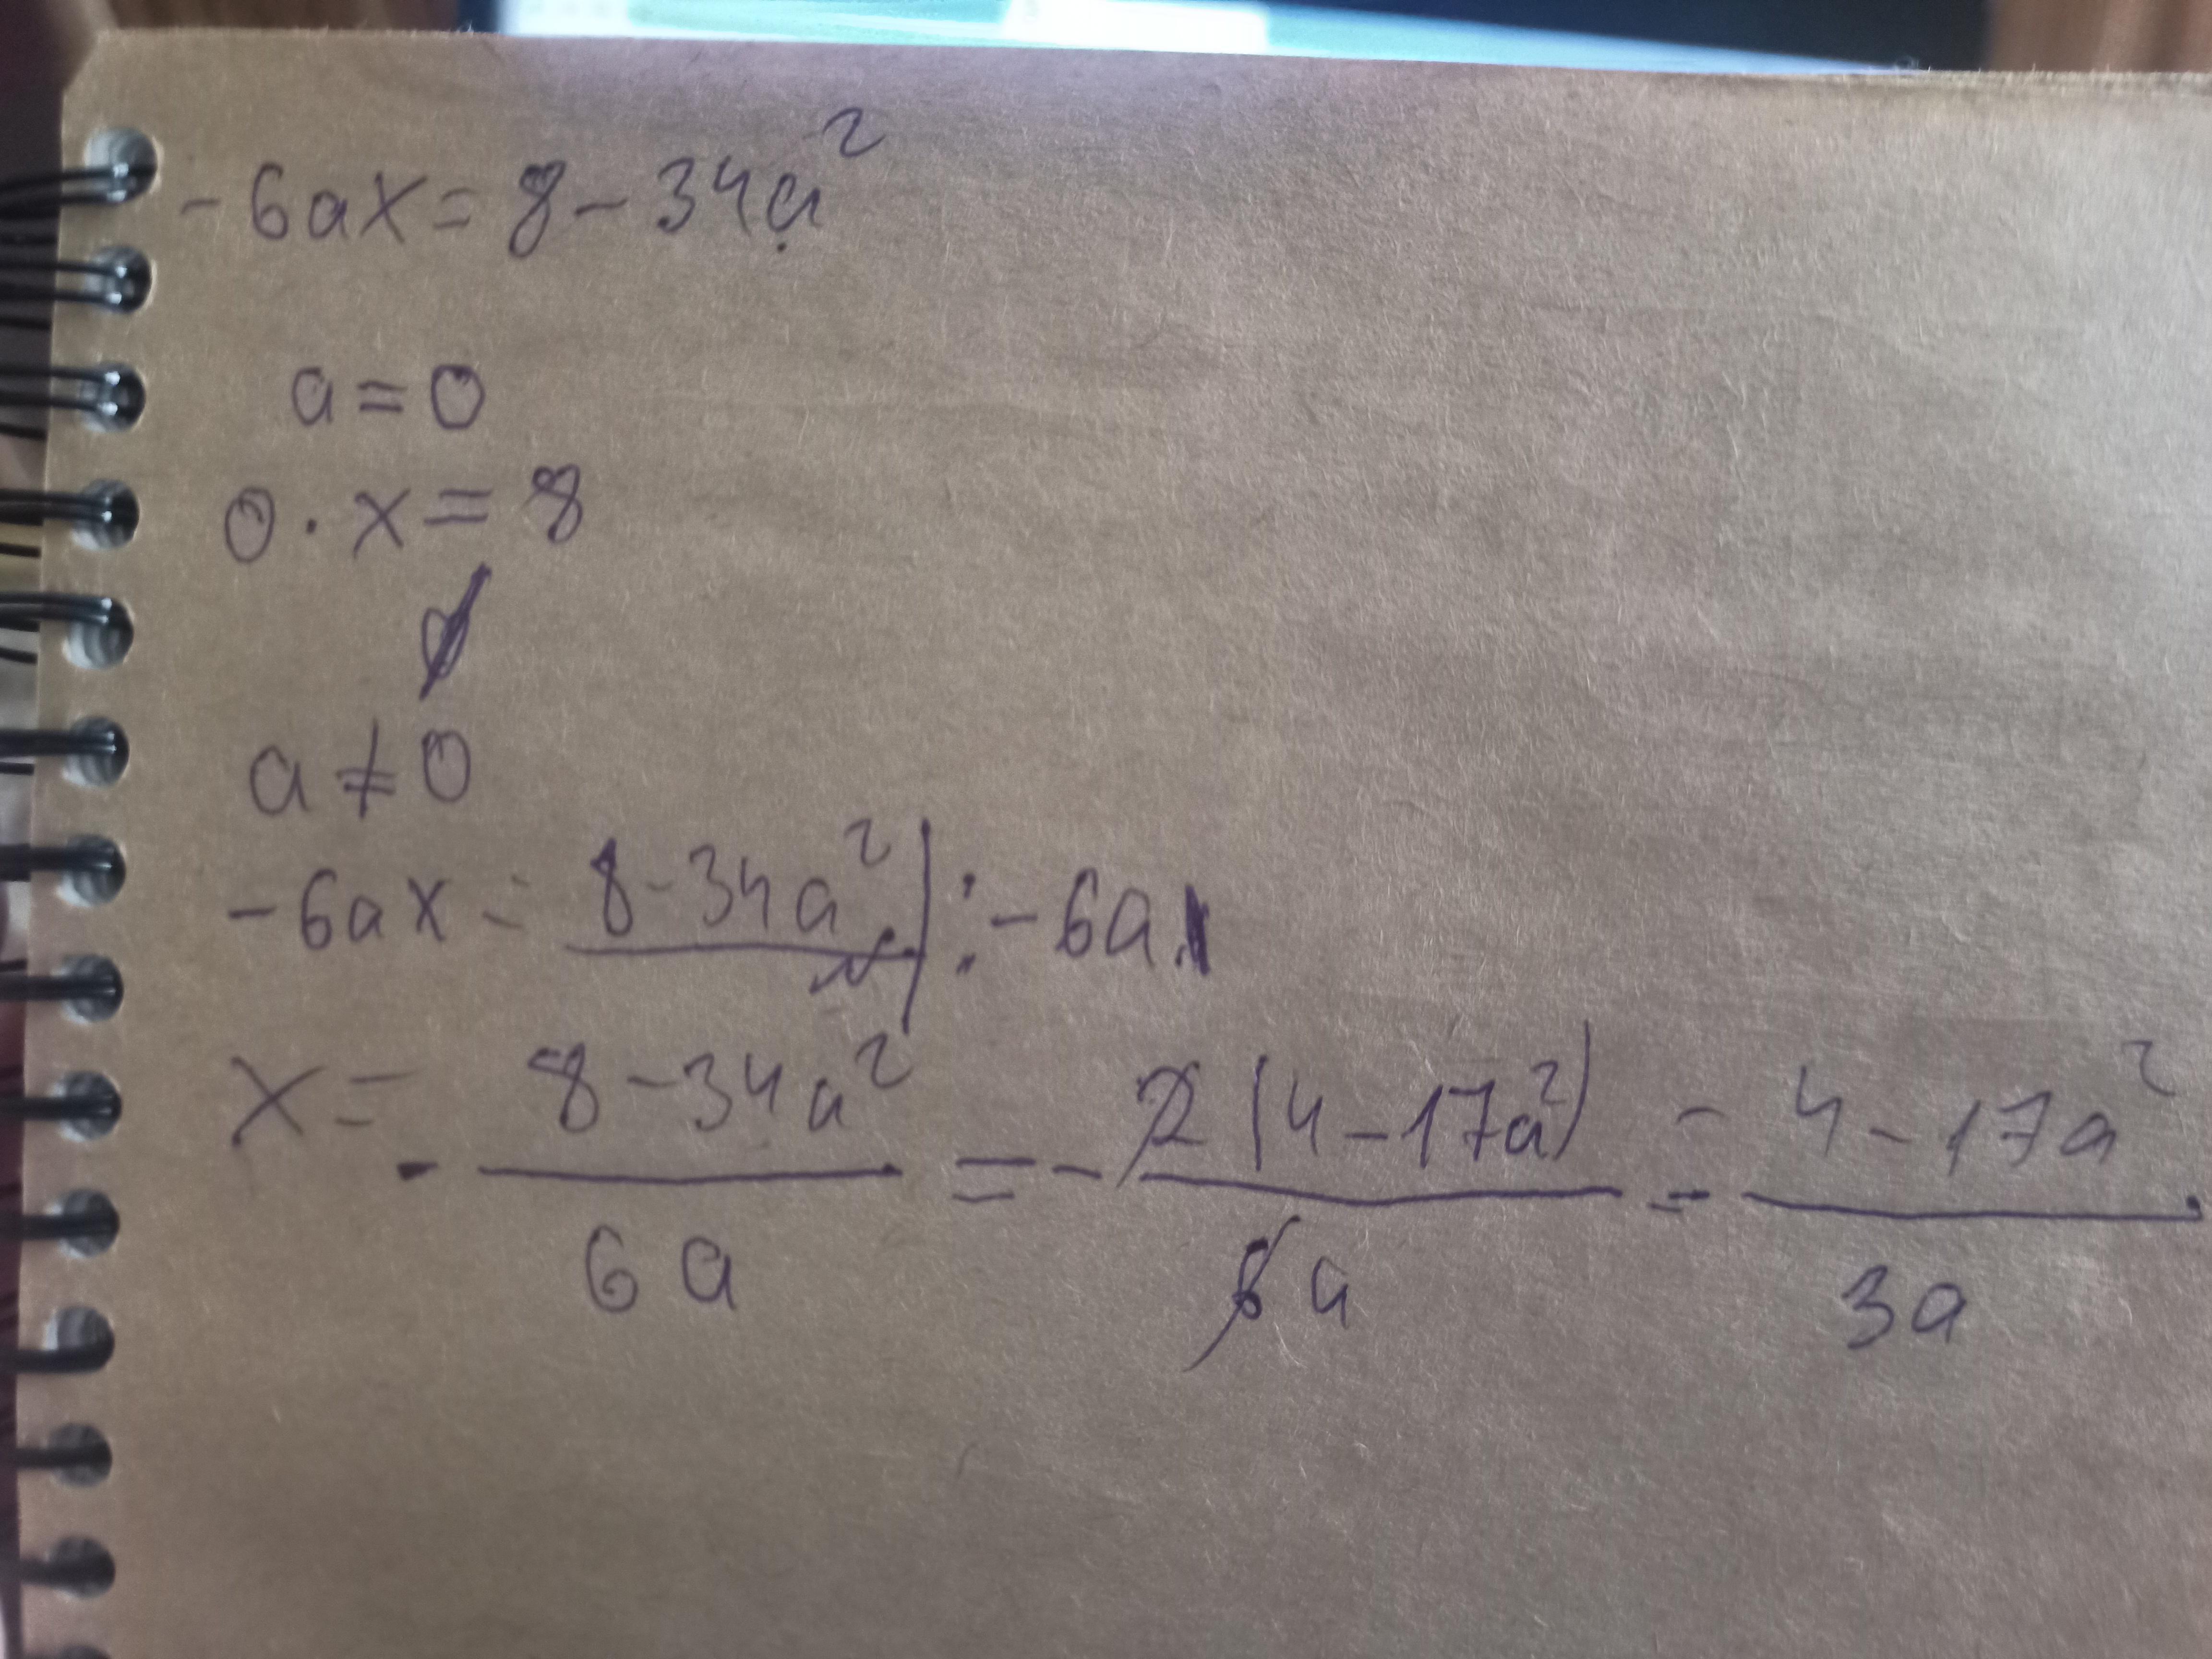 -6ax = 8 - 34a²
a = 0
0 · x = 8
∅
a ≠ 0
-6ax = 8 - 34a² | : -6a
x = - (8 - 34a²)/(6a) = - (2(4 - 17a²))/(6a) = - (4 - 17a²)/(3a)